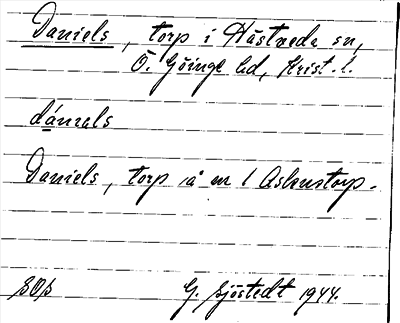 Daniels, torp i Hästveda sn,
Ö. Göinge hd, Krist. l.
dánɩals
Daniels, torp å nr 1 Askenstorp.
SOS
G. Sjöstedt 1944.